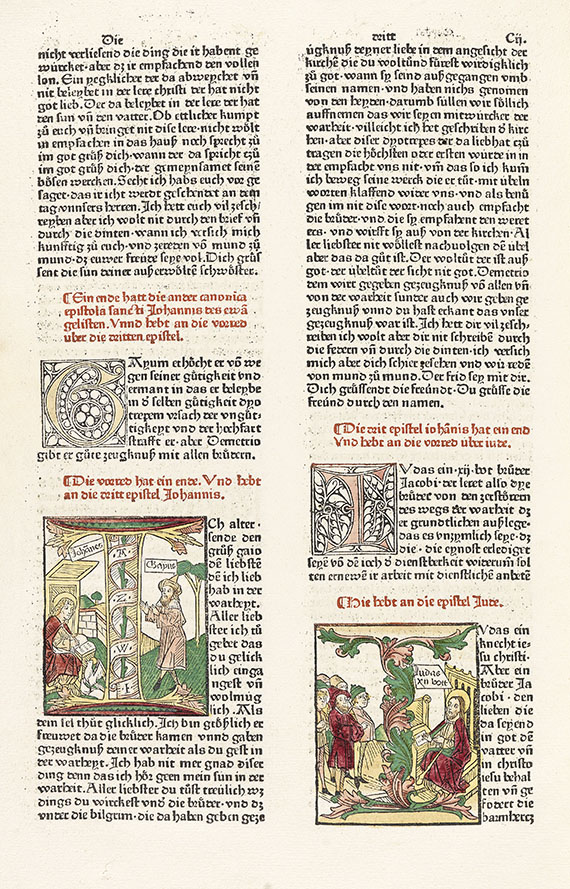 Die
nicht verliesend die ding die ir habent ge
würcket· aber dz ir empfachend den vollen
lon. Ein yegklicher der da abweychet vñ
nit beleybet in der lere christi der hat nicht
got lieb. Der da beleybet in der lere der hat
den sun vñ den vatter. Ob ettlicher kumpt
zů euch vñ bringet nit dise lere· nicht wölt
in empfachen in das hauß noch sprecht zů
im got grüß dich· wann der da spricht zů
im got grüß dich· der gemeynsamet seinē
bösen wercken. Secht ich habs euch vor ge
saget· das ir icht werdt geschendet an dem
tag vnsers herren. Ich hett euch vil ze sch
reyben aber ich wolt nit durch den brief vñ
durch die dinten· wann ich versich mich
künfftig zů euch· vnd zereden vō mund zů
mund· dz ewer freüde seye vol. Dich grüs
sent die sun deiner außerwölten schwöster.
¶Ein ende hatt die ander canonica
epistola sancti Johannis des ewā
gelisten. Vnnd hebt an die vorred
über die dritten epistel.
GAyum erhöcht er vō we
gen seiner gütigkeit vnd
ermant in das er beleybe
in d selben gütigkeit dyo
trepem vrsach der vngüt
tigkeyt vnd der hochfart
strafft er· aber Demetrio
gibt er güte zeugknuß mit allen brüdern.
¶Die vorred hat ein ende. Vnd hebt
an die dritt epistel Johannis.
Johānes
Gayus
Ich alter·
sende den
grüß gaio
dē liebstē
dē ich lieb
hab in der
warheyt.
Aller lieb
ster ich tů
gebet das
du gelick
lich einga
ngest vñ
wolmüg
lich. Als
dein sel thüt glicklich. Ich bin gröhlich er
freuwet da die brüder kamen vnnd gaben
gezeugknuß deiner warheit als du gest in
der warheyt. Ich hab nit mer gnad diser
ding denn das ich hör geen mein sun in der
warheit. Aller liebster du tüst treülich wz
dings du wirckest vnd die brüder· vnd dz
vnder die bilgrim· die da haben geben geze
dritt
Cij.
ügknuß deyner liebe in dem angesicht der
kirchē die du woltünd fürest wirdigklich
zů got· wann sy seind außgegangen vmb
seinen namen· vnd haben nichs genomen
von den heyden· darumb süllen wir söllich
auffnemen das wir seyen mitwürcker der
warheit· villeicht ich het geschriben d kirc
hen· aber diser dyotrepes der da liebhat czů
tragen die höchsten oder ersten würde in in
der empfacht vns nit· vm̄ das so ich kum̄
ich beweg seine werck die er tüt· mit übeln
worten klaffend wider vns· vnd als benü
gen im nit dise wort· noch auch empfacht
die brüder· vnd die sy empfahent den weret
ers· vnd wirfft sy auß von der kirchen. Al
ler liebster nit wöllest nachuolgen dē übel
aber das da güt ist. Der woltüt der ist auß
got· der übeltüt der sicht nit got. Demetrio
dem wirt gegeben gezeugknuß vō allen vñ
von der warheit sunder auch wir geben ge
zeugknuß vnnd du hast erkant das vnser
gezeugknuß war ist. Ich hett dir vil zesch
reiben ich wolt aber dir nit schreibē durch
die federn vñ durch die dinten· ich versich
mich aber dich schier zesehen vnd wir redē
von mund zů mund. Der frid sey mit dir.
Dich grüssendt die freündt· Du grüsse die
freünd durch den namen.
¶Die drit epistel iohānis hat ein end
Vnd hebt an die vorred über iude.
IVdas ein ·xij· bot brüder
Jacobi· der leret also dye
brüder von den zerstörern
des wegs der warheit dz
er grundtlichen außlege·
das es vnzymlich seye· dz
die· die eynost erlediget
seyē vō dē ioch d dienstberkeit widerum̄ sol
ten ernewē ir arbeit mit dienstlichē anbetē
¶Hie hebt an die epistel Jude.
Judas
xij bott
IVdas ein
knecht ie
su christi·
Aber ein
brüder Ja
cobi· den
lieben die
da seyend
in got dē
vatter vñ
in christo
iesu behal
ten vñ ge
fodert die
barmhercz